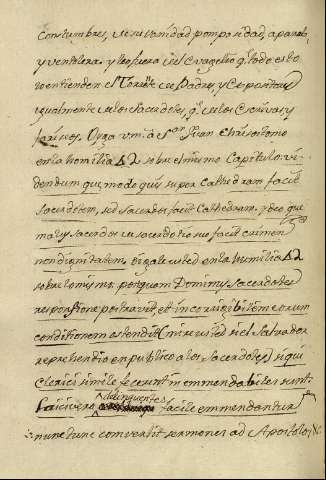 Costumbres, de su vanidad pomposidad, aparato,
y ventolera. y leo fuera del Evangelio q.e todo esto
lo entienden el S.to de Padres, y Expositores
igualmente de los Sacerdotes, q.e de los Escrivas, y
fariseos. Oyga vm. a S.n Juan Chrisostomo
en la homilia 42 sobre el mismo Capitulo: vi-
dendum quomodo quis super Cathedram facit
Sacerdotem, sed Sacerdos facit Cathedram. ydeo que
malus Sacerdos de sacerdotio suo facit crimen
non dignitatem. oygale usted en la humilia 42
sobre lo mismo: postquam Dominus Sacerdotes
responsione prostravit, et incorrigibilem eorum
conditionem ostendit (mire usted si el Salvador
reprehendio en publico a los Sacerdotes) si qui
Clerici simile fecerint inemmendabiles sunt:
Laici vero delinquentes facile emmendantur
nunc tunc convertit sermones ad Apostolos &c.